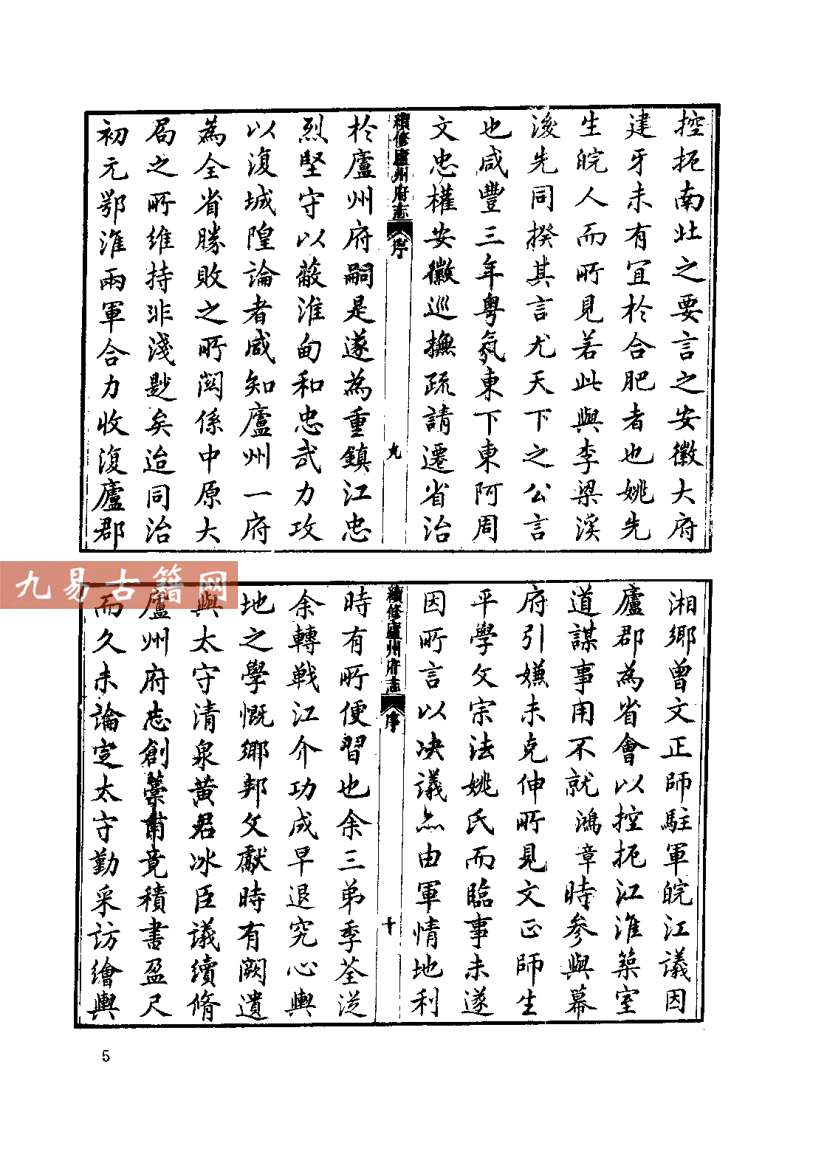 控扼南北之要言之安徽大府
建牙未有宜於合肥者也姚先
生皖人而所見若此與李梁溪
後先同揆其言尤天下之公言
也咸豐三年粤氛東下東阿周
文忠權安徽巡撫疏請遷省治
續修廬州府志
序
九
於廬州府嗣是遂為重鎮江忠
烈堅守以蔽淮甸和忠武力攻
以復城隍論者咸知廬州一府
為全省勝敗之所關係中原大
局之所維持非淺尟矣迨同治
初元鄂淮兩軍合力收復廬郡
湘鄉曾文正師駐軍皖江議因
廬郡為省會以控扼江淮築室
道謀事用不就鴻章時參與幕
府引嫌未克伸所見文正師生
平學文宗法姚氏而臨事未遂
因所言以决議亦由軍情地利
續修廬州府志
序
十
時有所便習也余三弟季荃從
余轉戰江介功成早退究心輿
地之學慨鄉邦文獻時有闕遺
與太守清泉黄君冰臣議續脩
廬州府志創藁甫竟積書盈尺
而久未論定太守勤采訪繪輿
九易古籍网
5